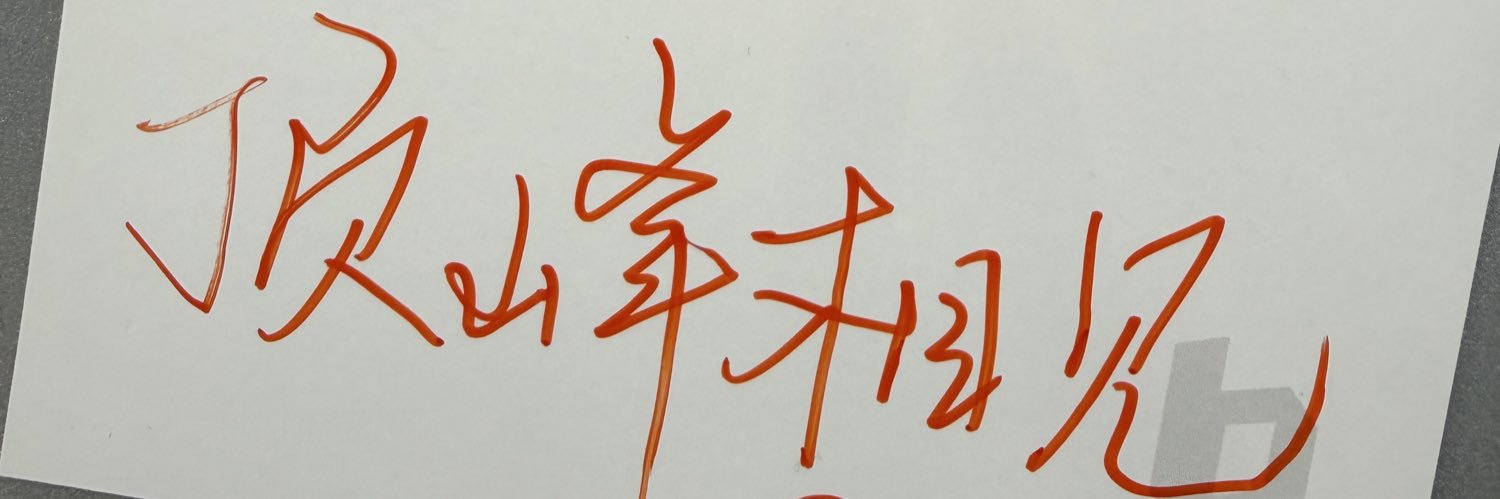 顶峰相见